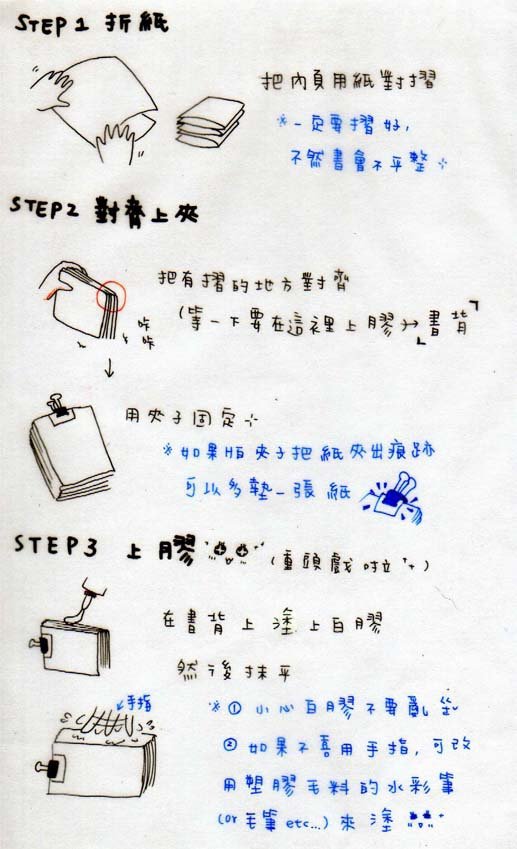 STEP1 折紙
把內頁用紙對摺
※一定要摺好,
不然書會不平整
STEP2 對齊上夾
把有摺的地方對齊
(等一下要在這裡上膠→「書背」
咔
咔
用夾子固定
※如果怕夾子把紙夾出痕跡
可以多墊一張紙
STEP3 上膠 (重頭戲啦)
在書背上塗上白膠
然後抹平
手指
※① 小心白膠不要亂
② 如果不喜用手指,可改
用塑膠毛料的水彩筆
(or毛筆 etc...) 來塗